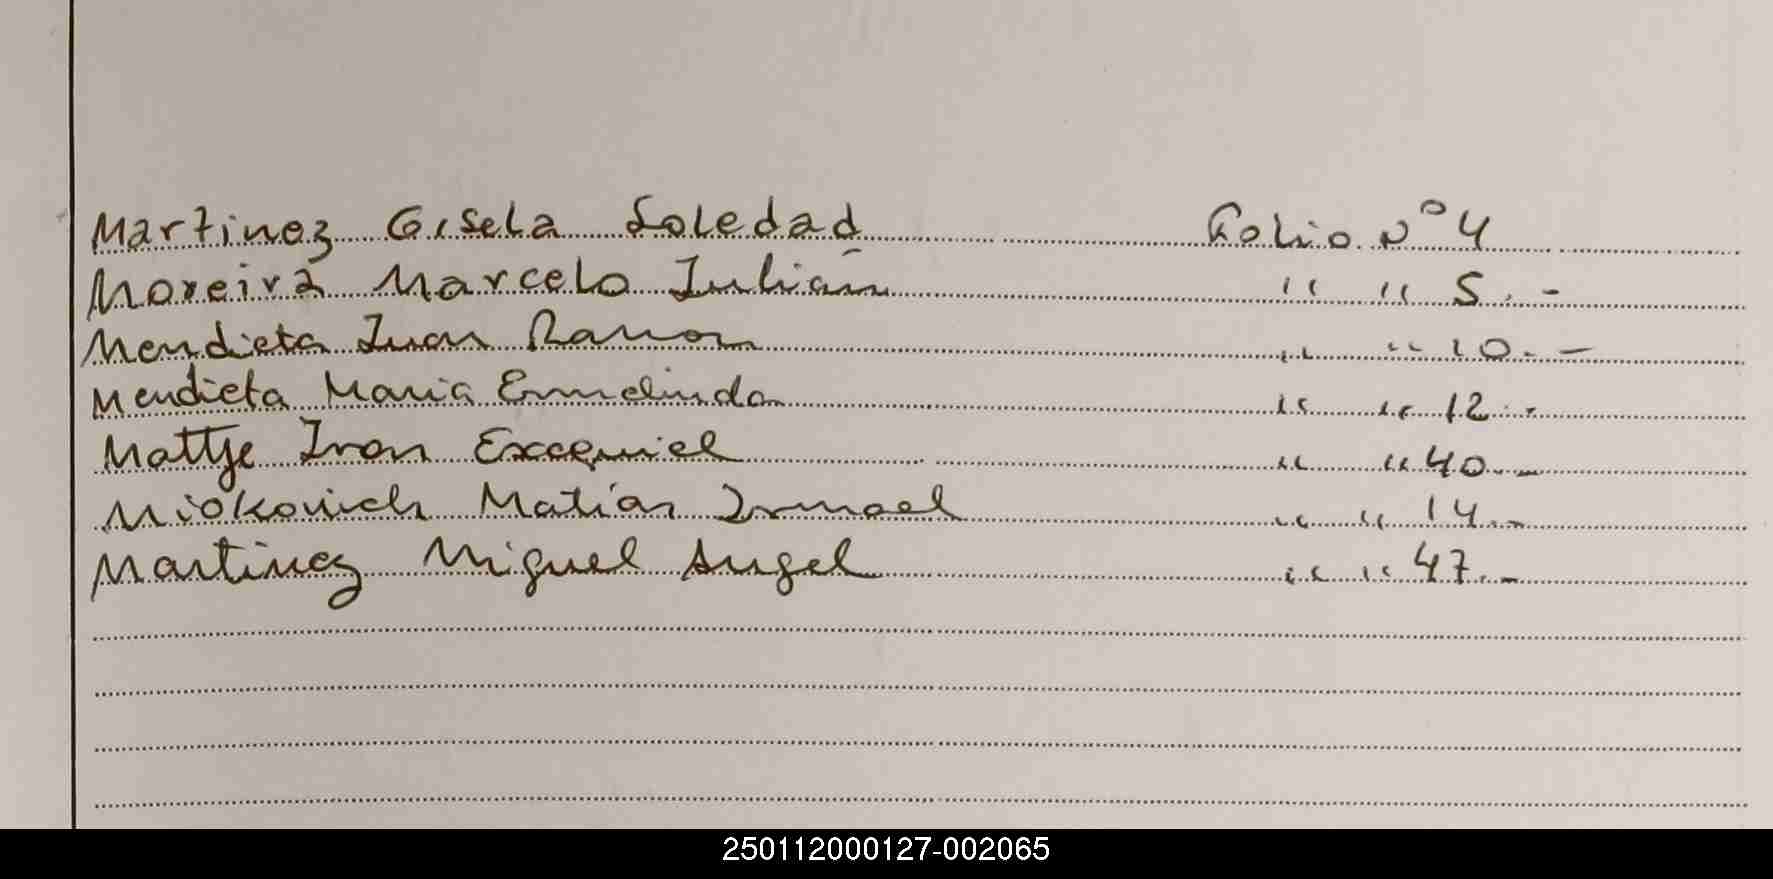 Martinez Gisela Soledad Folio Nº 4
Moreira Marcelo Julián " " 5.-
Mendieta Juan Ramon " " 10.-
Mendieta Maria Ermelinda " " 12.-
Mattje Ivan Excequiel " " 40.-
Miokovich Matías Ismael " " 14.-
Martinez Miguel Angel " " 47.-
250112000127-002065